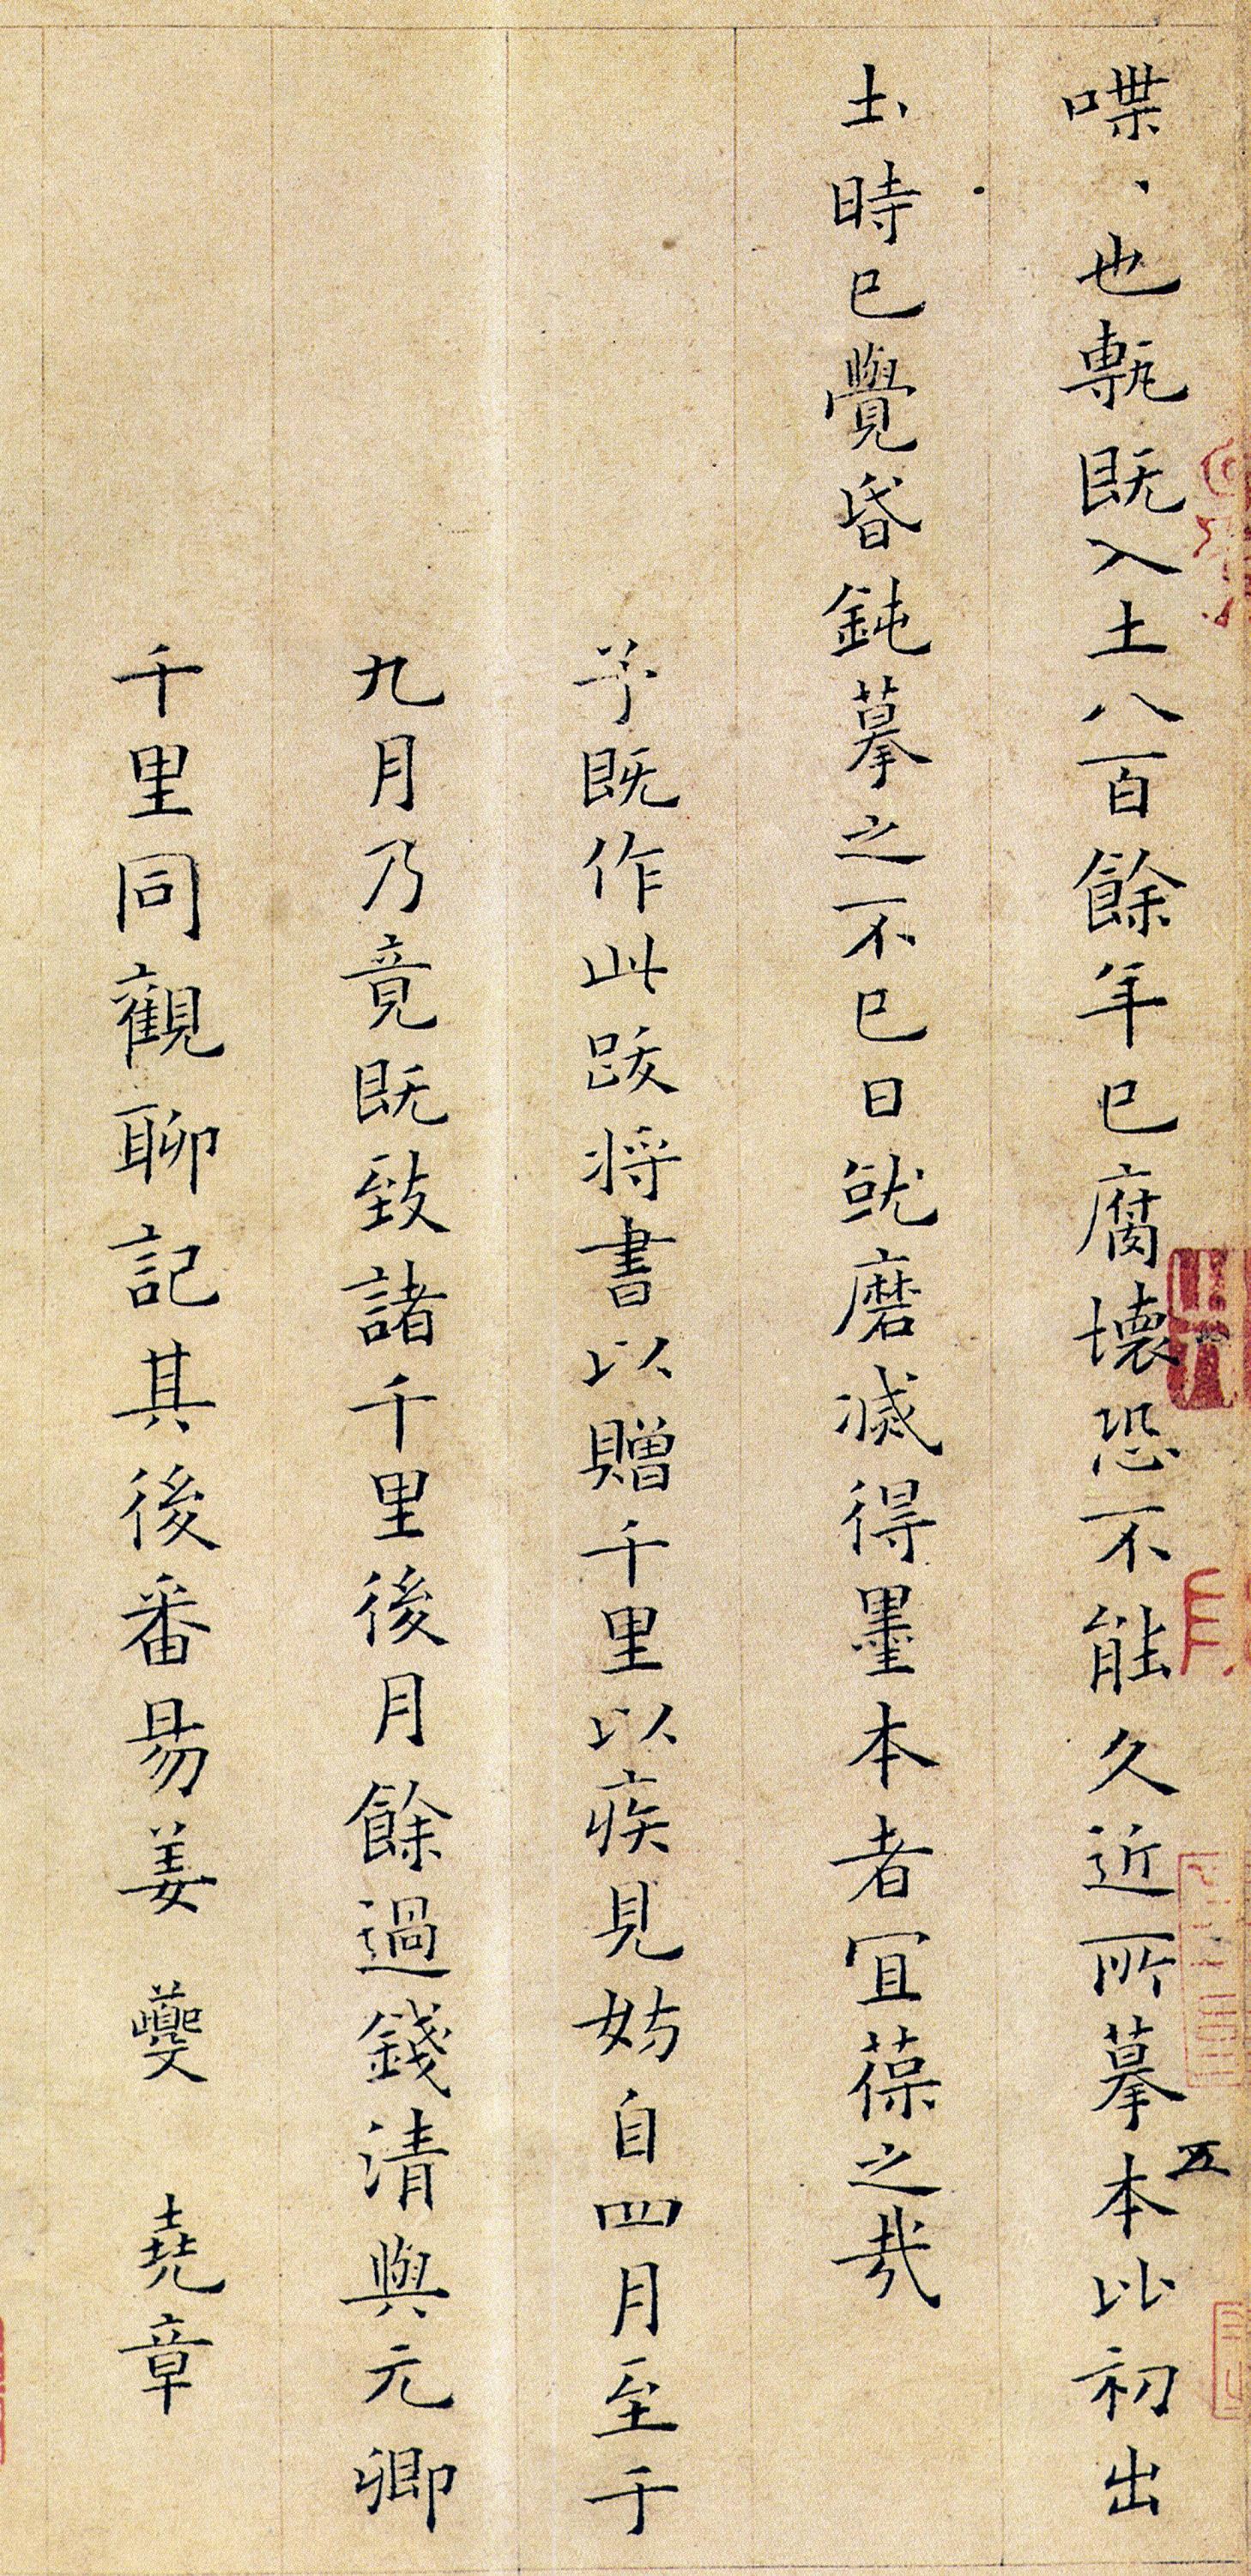 喋、也甎既入土八百餘年已腐壞恐不能久近所摹本比初出
土時已覺昏鈍摹之不已日就磨滅得墨本者宜葆之哉
予既作此跋將書以贈千里以疾見妨自四月至于
九月乃竟既致諸千里後月餘過錢清與元卿
千里同觀聊記其後番昜姜夔堯章
五